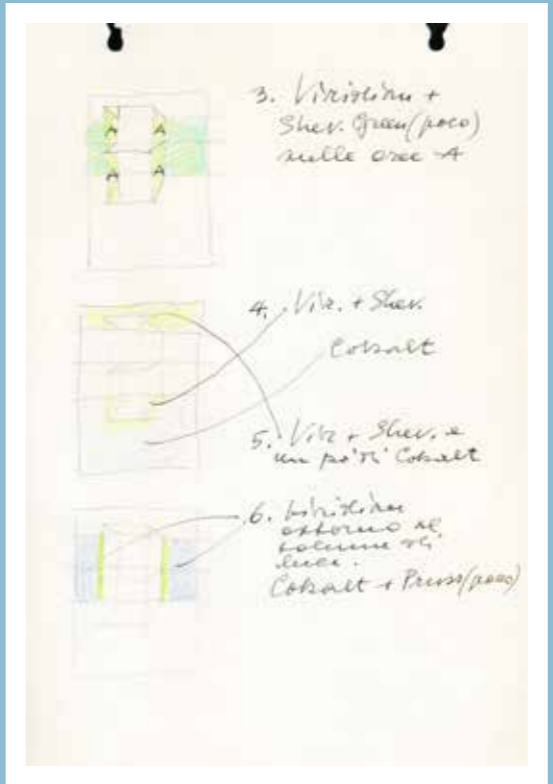 3. Viridian +
Shev. Green (poco)
nelle aree A
A A
A A
4. Vir. + Shev.
Cobalt
5. Vir + Shev. e
un po' di Cobalt
6. Viridian
attorno al
volume di
luce.
Cobalt + Pruss (poco)